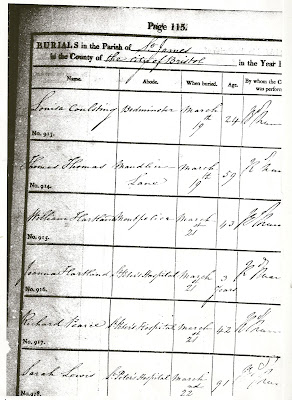 Page 115.
BURIALS in the Parish of St James
in the County of the City of Bristol in the Year 1
Name. Abode. When buried. Age. By whom the C
was perfor
Louisa Coulsting Bedminster March 19th 24
No. 913.
Thomas Thomas Maudlin Lane March 19th 59
No. 914.
William Hartland Montpelier March 21st 43
No. 915.
Joanna Hartland St Peters Hospital March 21 3 years
No. 916.
Richard Pearce St Peters Hospital March 21 42
No. 917.
Sarah Lewis St Peters Hospital March 22nd 91
No. 918.